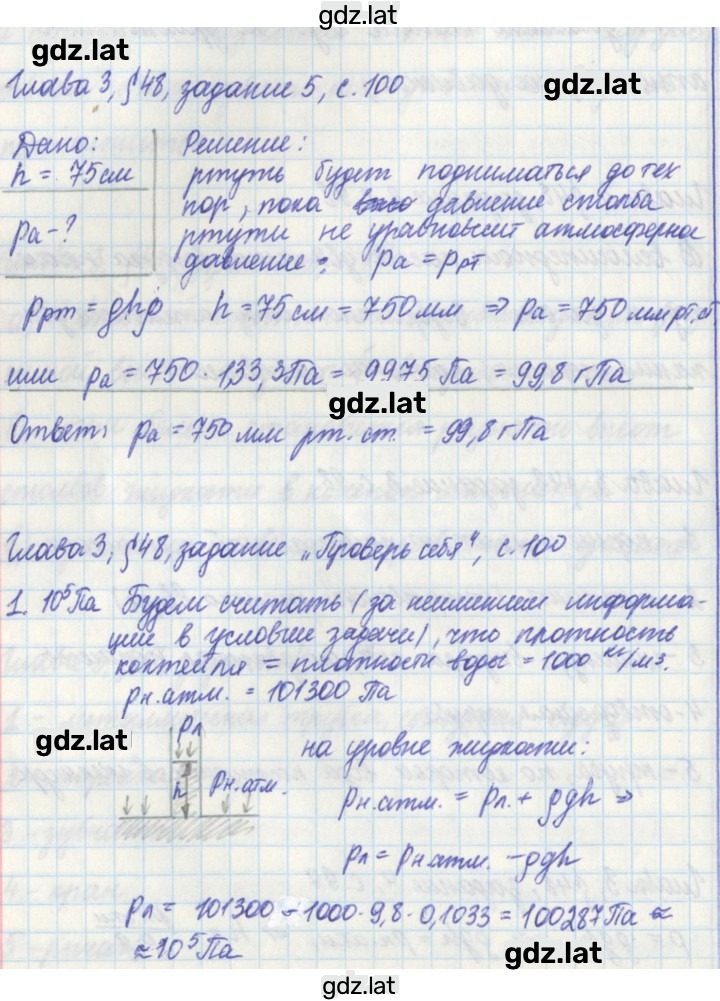 gdz.lat
gdz.lat
Глава 3, §48, задание 5, с. 100
gdz.lat
Дано:
h = 75 см
pa - ?
Решение:
ртуть будет подниматься до тех
пор, пока давление столба
ртути не уравновесит атмосферное
давление: pa = pрт
Pрт = ghρ h = 75 см = 750 мм ⇒ pa = 750 мм рт.ст
или pa = 750 · 133,3 Па = 9975 Па = 99,8 гПа
gdz.lat
Ответ: pa = 750 мм рт. ст. = 99,8 гПа
Глава 3, §48, задание „Проверь себя", с. 100
1. 10⁵ Па Будем считать (за неимением информа-
ции в условие задачи), что плотность
коктейля = плотности воды = 1000 кг/м3.
pн.атм. = 101300 Па
gdz.lat
pл
h
pн.атм.
на уровне жидкости:
pн.атм. = pл. + ρgh ⇒
pл = pн.атм. - ρgh
pл = 101300 - 1000 · 9,8 · 0,1033 = 100287 Па ≈
≈ 10⁵ Па
gdz.lat
gdz.lat